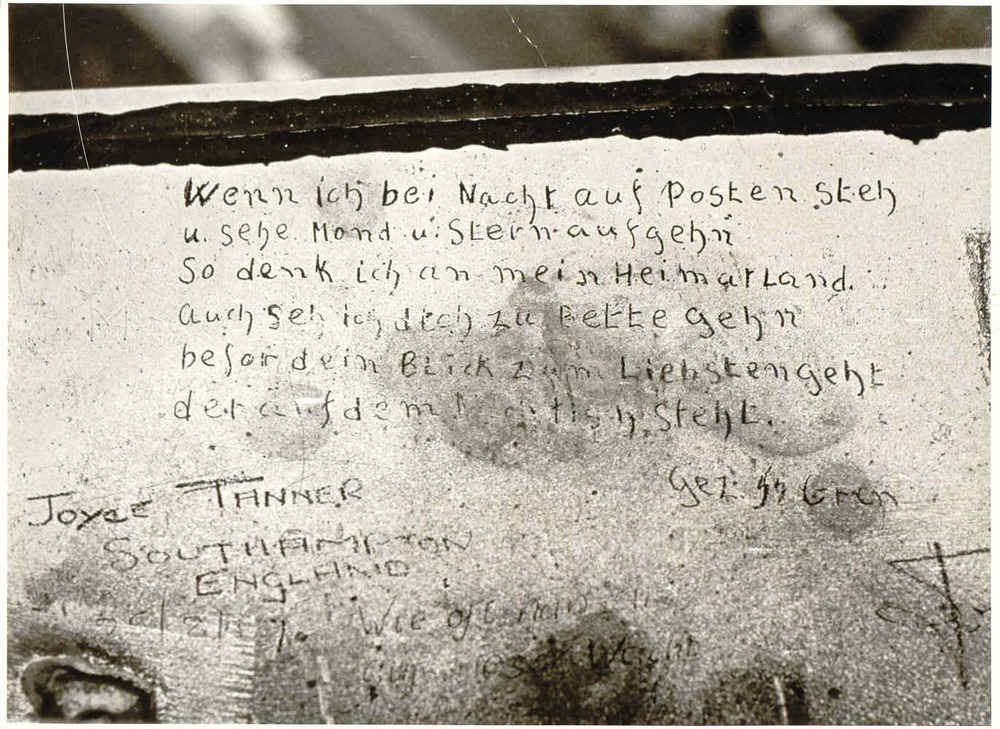 Wenn ich bei Nacht auf Posten steh
u. sehe Mond u. Stern aufgehn
So denk ich an mein HeimatLand.
auch seh ich dich zu Bette gehn
befor dein Blick zum Liebstengeht
der auf dem steht.
gez. SS Gren
JOYCE TANNER
SOUTHAMPTON
ENGLAND
Wie oft